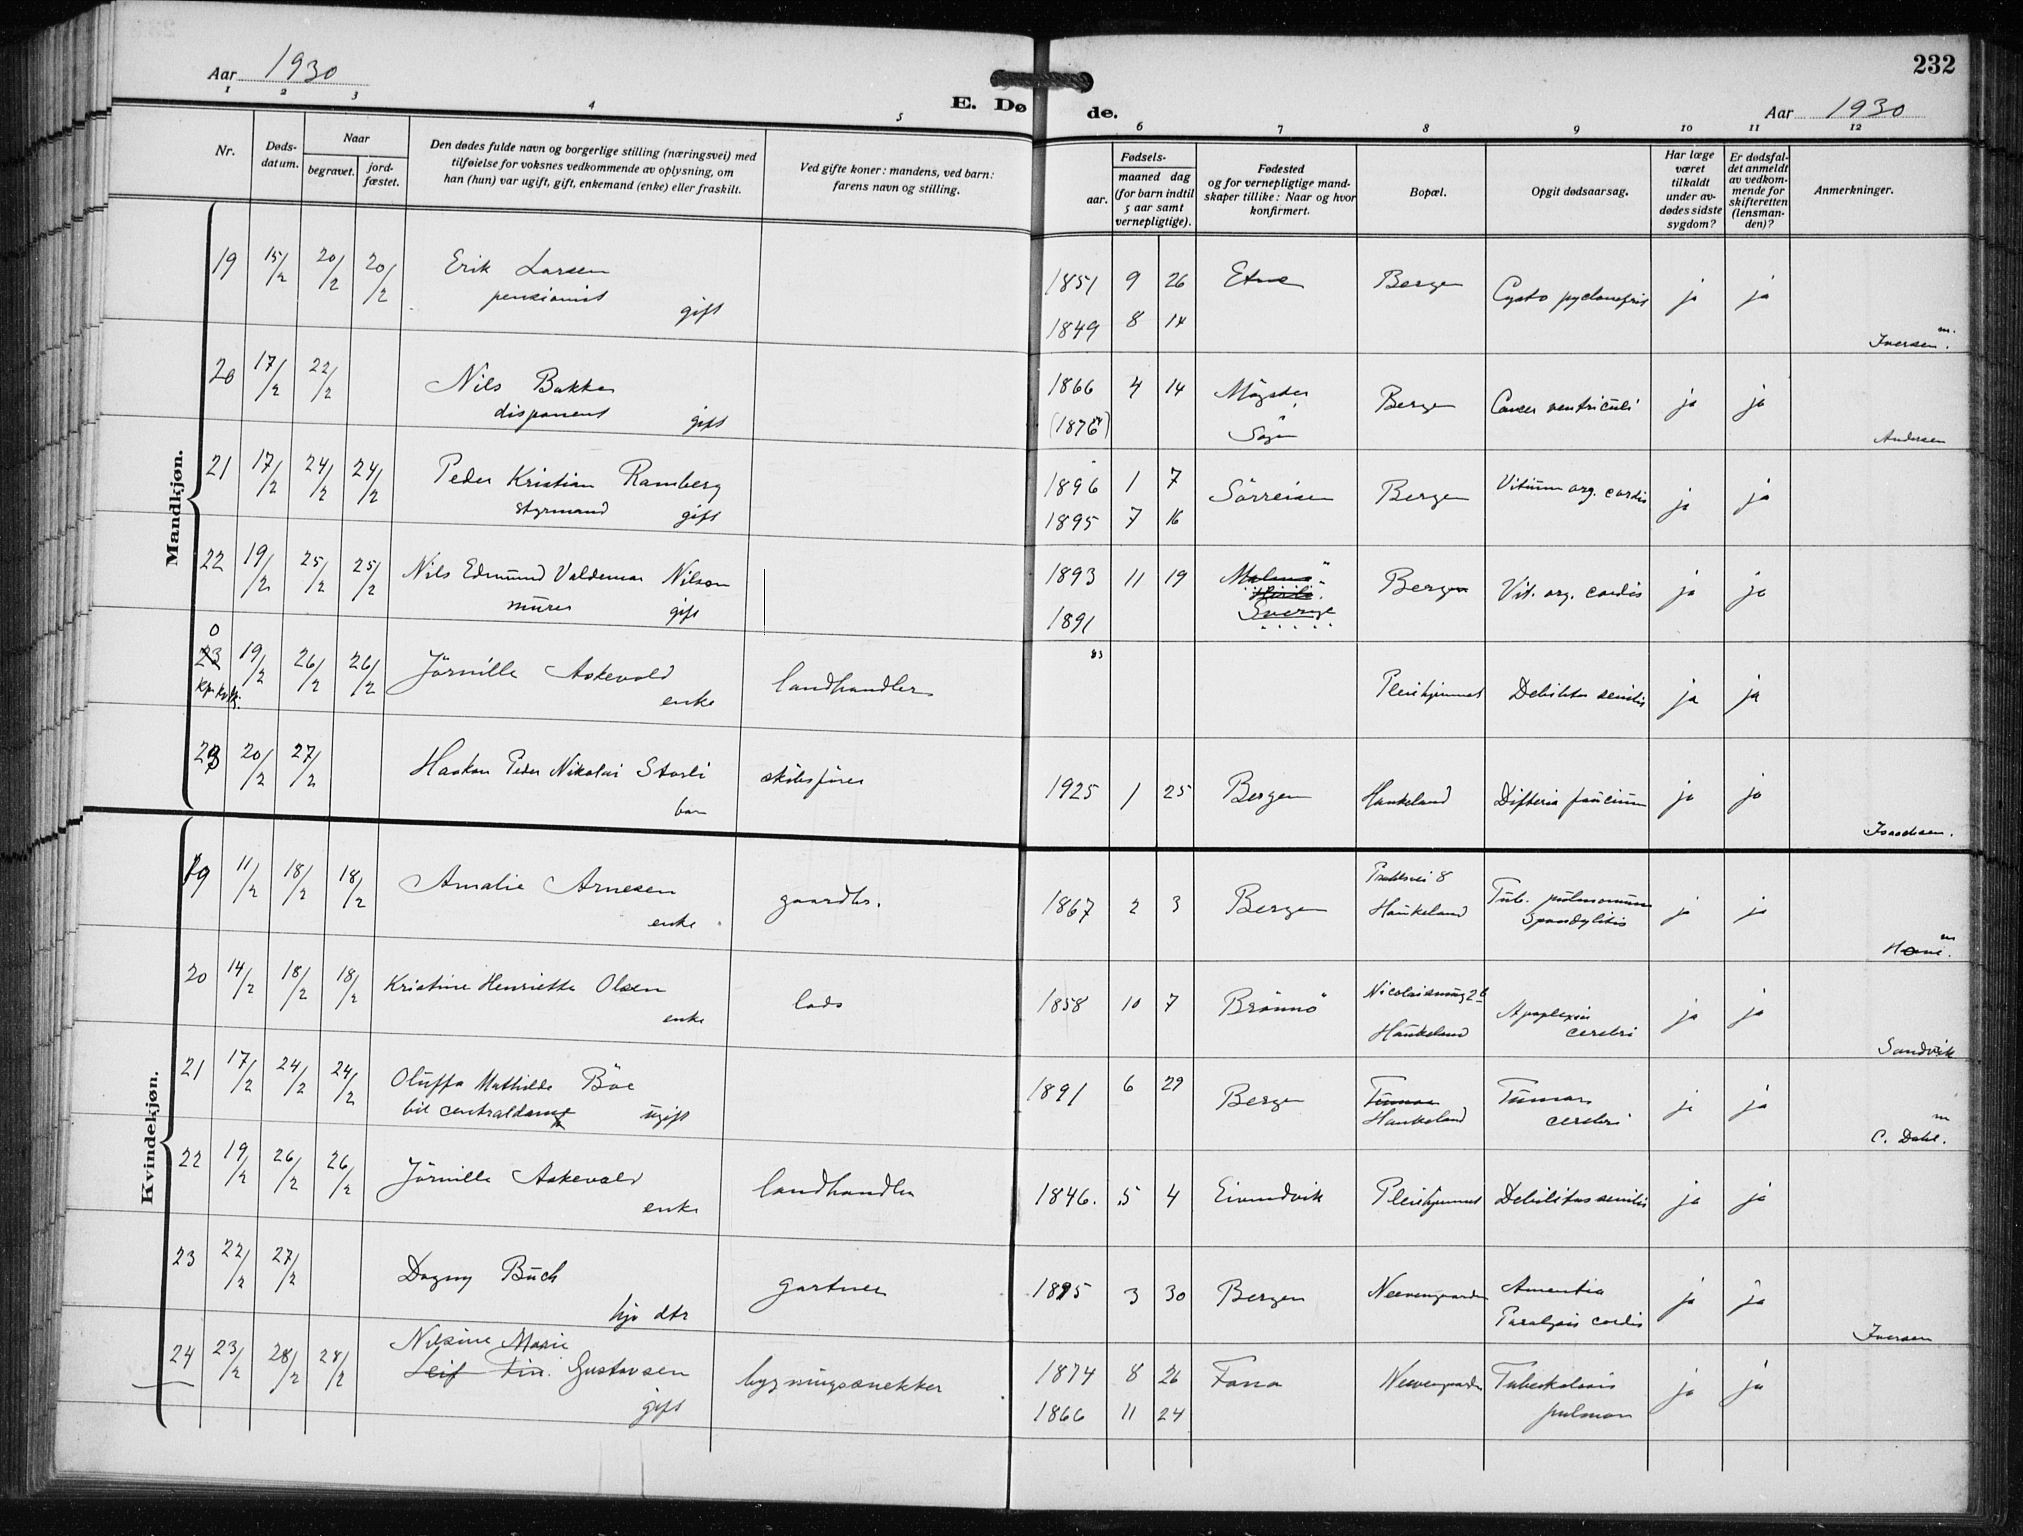 232
Aar 1930
E. Dø
de.
Aar 1930
1 2 3 4 5 6 7 8 9 10 11 12
Nr.
Døds-
datum.
Naar
begravet.
jord-
fæstet.
Den dødes fulde navn og borgerlige stilling (næringsvei) med
tilføielse for voksnes vedkommende av oplysning, om
han (hun) var ugift, gift, enkemand (enke) eller fraskilt.
Ved gifte koner: mandens, ved barn:
farens navn og stilling.
Fødsels-
aar.
maaned dag
(for barn indtil
5 aar samt
vernepligtige).
Fødested
og for vernepligtige mand-
skaper tillike: Naar og hvor
konfirmert.
Bopæl.
Opgit dødsaarsag.
Har læge
været
tilkaldt
under av-
dødes sidste
sygdom?
Er dødsfal-
det anmeldt
av vedkom-
mende for
skifteretten
(lensman-
den)?
Anmerkninger.
Mandkjøn.
19 15/2 20/2 20/2 Erik Larsen 1851 9 26 Etne Bergen Cysto pyelonefrit ja ja
pensionist gift
1849 8 14 Iversen m.
20 17/2 22/2 Nils Bakken 1866 4 14 Bergen Cancer ventriculi ja ja
disponent gift Andersen
21 17/2 24/2 24/2 Peder Kristian Ramberg 1896 1 7 Sörreisen Bergen Vitium org. cordis ja ja
styrmand gift 1895 7 16
22 19/2 25/2 25/2 Nils Edmund Valdemar Nilson 1893 11 19 Malmö Bergen Vit. org. cordis ja ja
murer gift 1891 Sverige
0
23 19/2 26/2 26/2 Jörnille Askevold landhandler 83 Pleiehjemmet Debilitas senilis ja ja
enke
23 20/2 27/2 Haakon Peder Nikolai Storli skibsfører 1925 1 25 Bergen Haukeland Difteria faucium ja ja
barn Isaachsen.
Kvindekjøn.
19 11/2 18/2 18/2 Amalie Arnesen gaardbr. 1867 2 3 Bergen Haukeland Tub. pulmonum ja ja
enke Spondylitis
20 14/2 18/2 18/2 Kristine Henriette Olsen lods 1858 10 7 Brönnö Haukeland Apoplexia cerebri ja ja
enke Sandvik
21 17/2 24/2 24/2 Oluffa Mathilde Böe 1891 6 29 Bergen Tumor Haukeland Tumor cerebri ja ja
centraldame ugift C. Dahl. m
22 19/2 26/2 26/2 Jörnille Askevold landhandler 1846. 5 4 Eivindvik Pleiehjemmet Debilitas senilis ja ja
enke
23 22/2 27/2 Dagny Buch gartner 1895 3 30 Bergen Neevengaarden Amentia ja ja
hjv dtr Paralysis cordis Iversen
Nilsine Marie
24 23/2 28/2 28/2 Leif Fin. Gustavsen bygningssnekker 1874 8 26 Fana Neevengaarden Tuberkulosis ja ja
gift 1866 11 24 pulmon